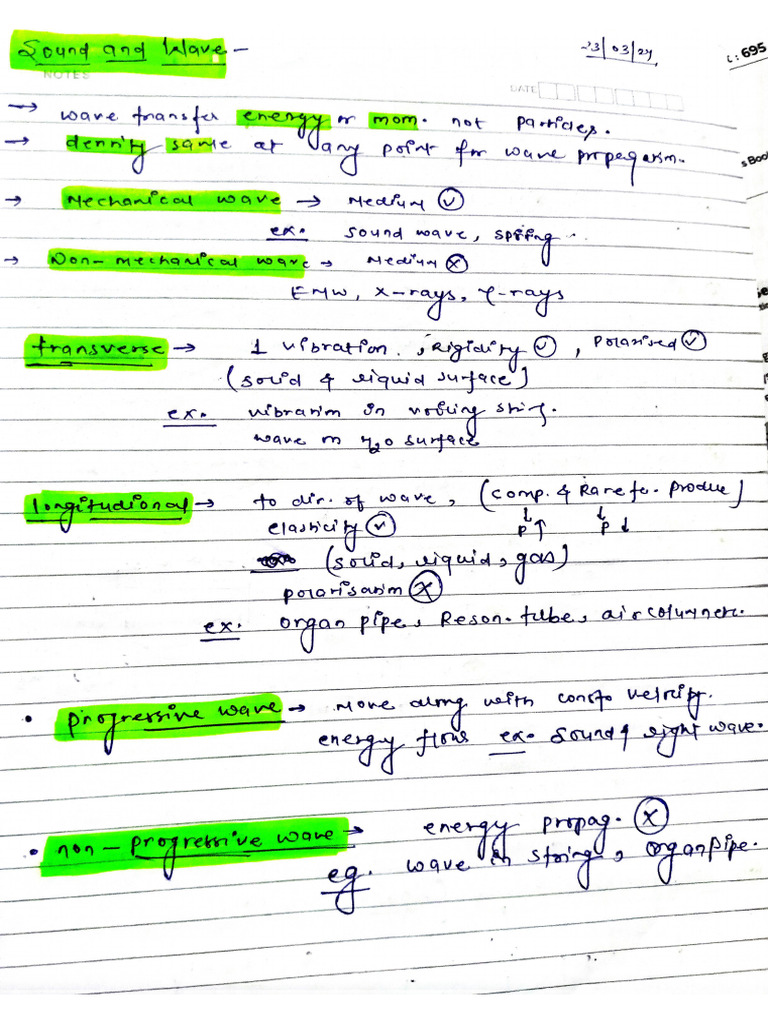 Sound and Wave -
23/03/24
L: 695
NOTES
DATE
→ wave transfer energy or mom. not particles.
s Boo
→ density same at any point for wave propagasm.
→ Mechanical wave → Medium ✓
ex. sound wave, spring
→ Non-mechanical wave → Medium ✗
EMW, X-rays, γ-rays
transverse → ⊥ vibration, Rigidity ✓, Polarised ✓
(solid & liquid surface)
ex. vibration in string.
wave on H₂O surface
longitudional → to dir. of wave, (comp. & Rarefa. produce)
elasticity ✓ ↓ P↑ ↓ P↓
(solid, liquid, gas)
polarisation ✗
ex. organ pipe, Reson. tube, air column etc.
• progressive wave → Move along with const. velocity.
energy flow ex. sound & light wave.
• non-progressive wave → energy propag. ✗
eg. wave in string, organ pipe.